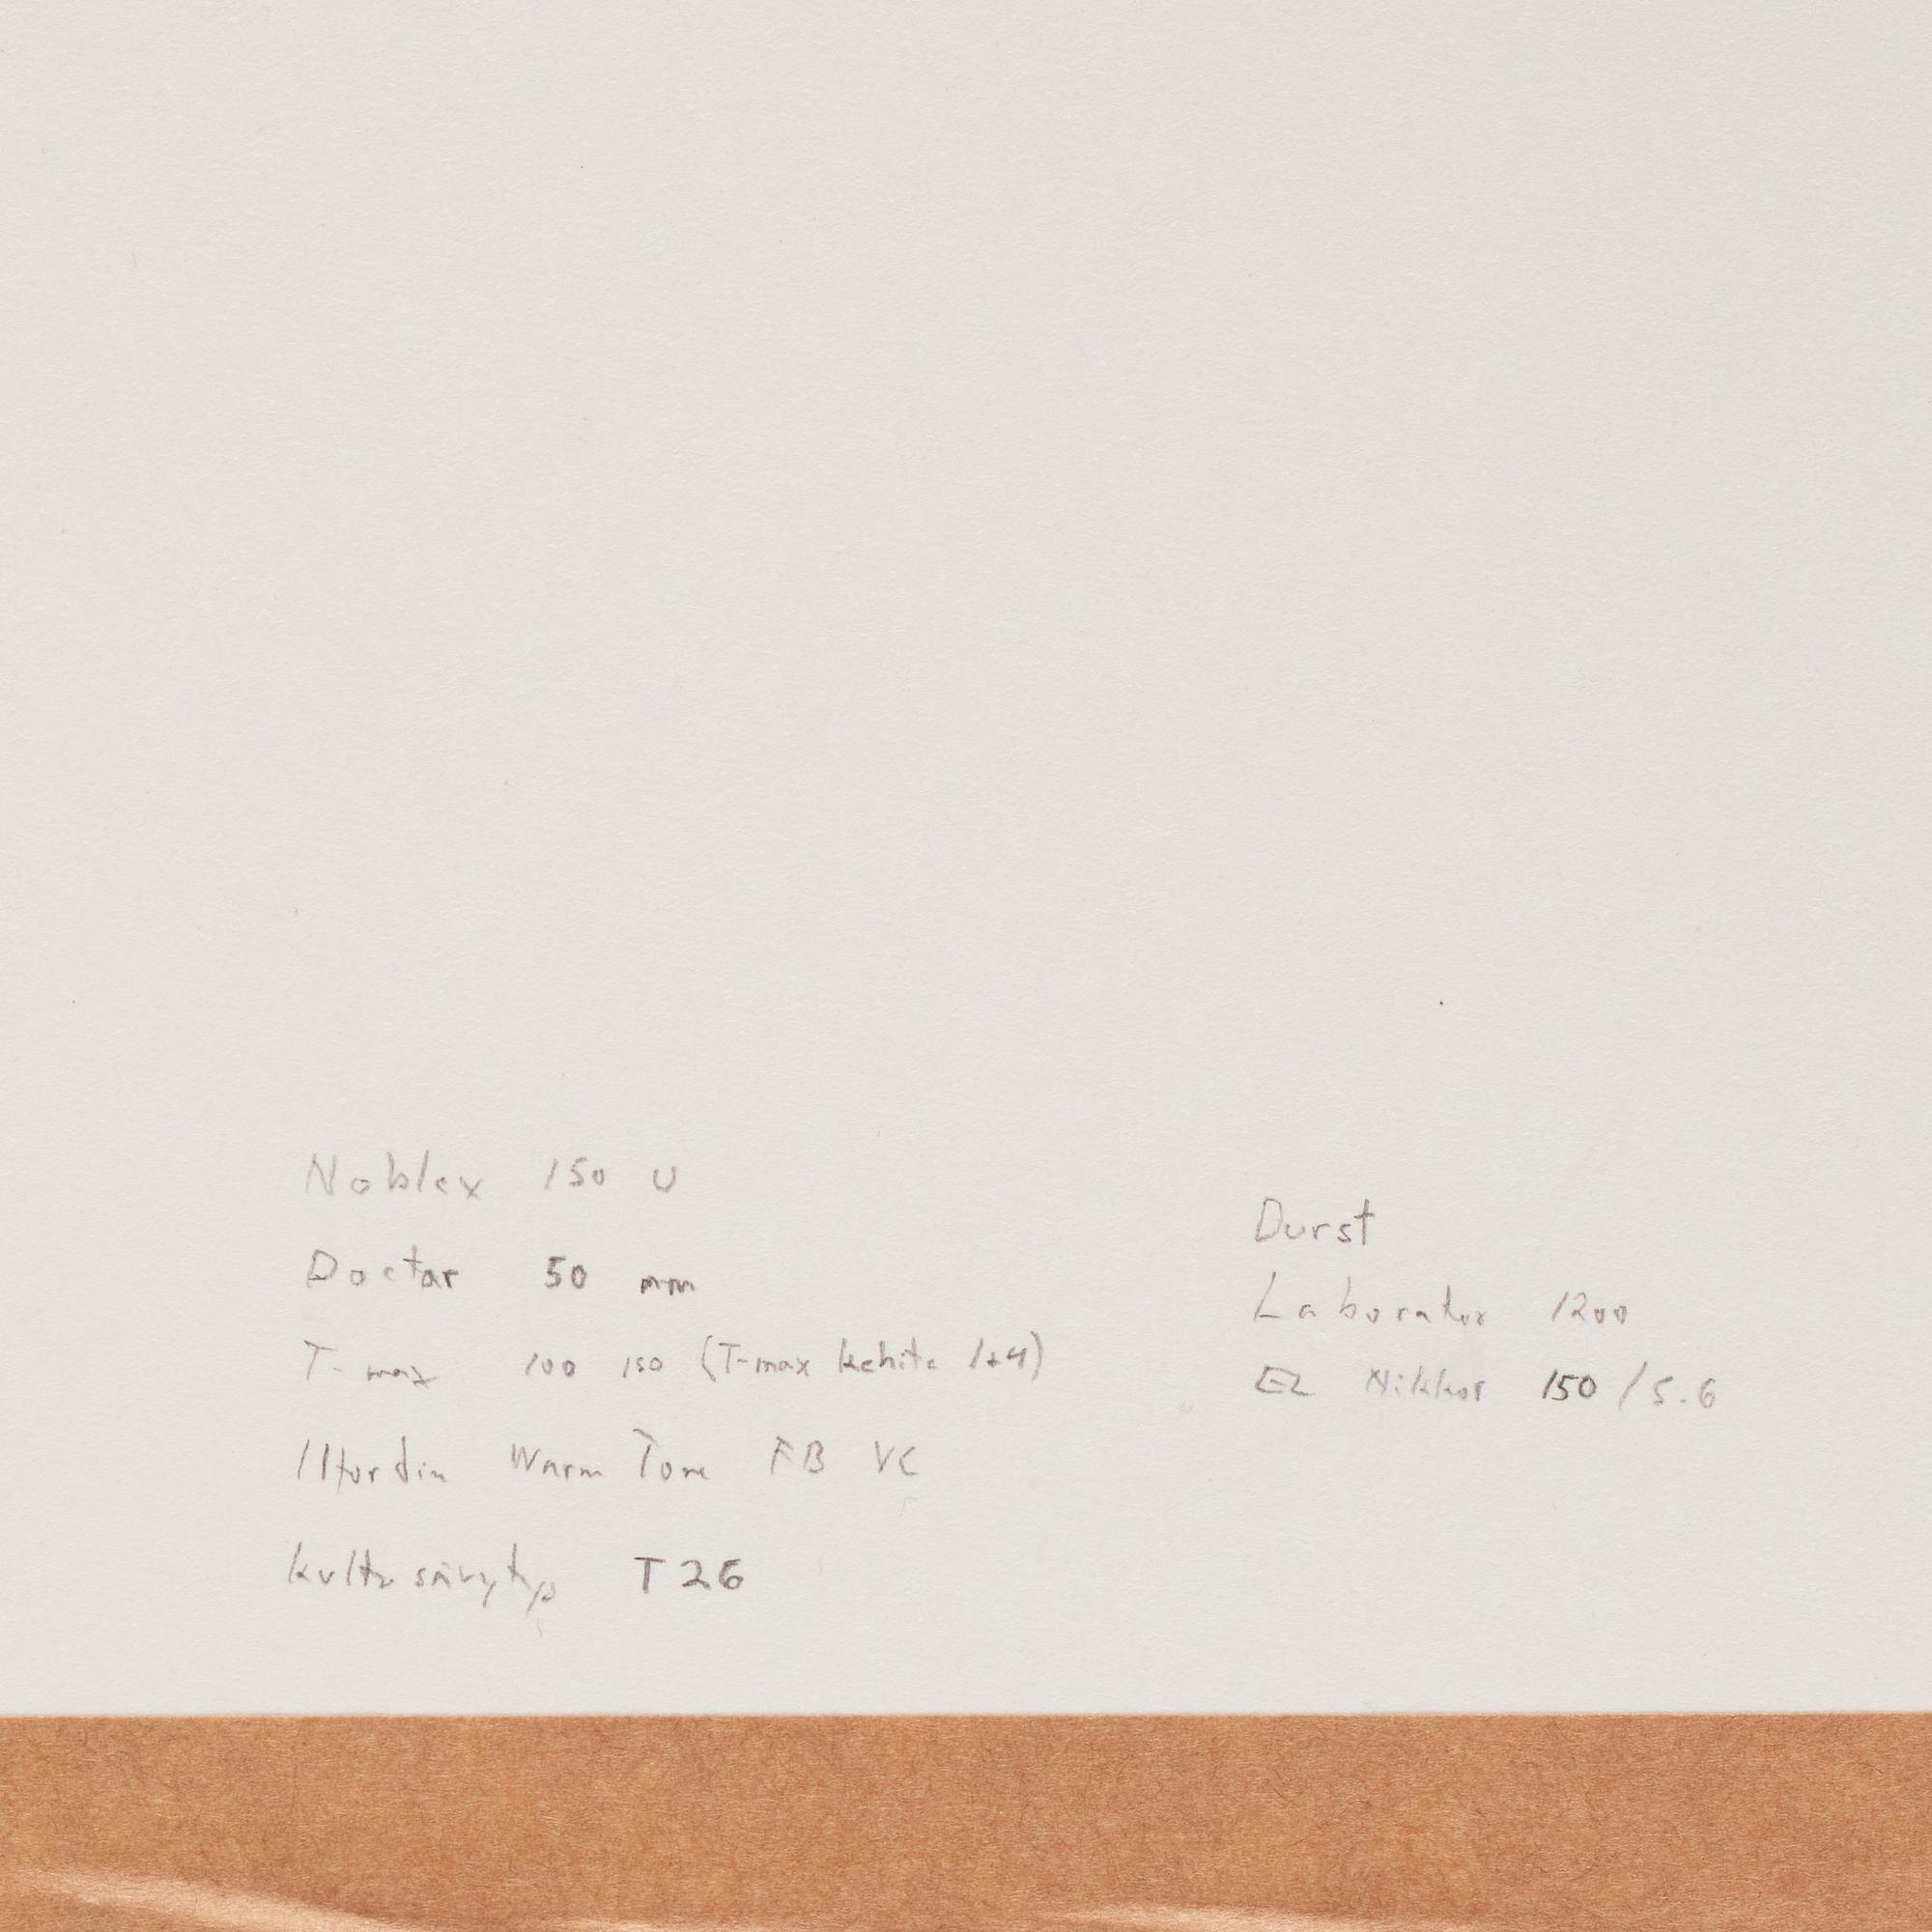 Noblex 150 U
Doctar 50 mm
T-max 100 150 (T-max kehite 1+4)
Ilfordin Warm Tone FB VC
kultasävytys T26
Durst
Laborator 1200
EL Nikkor 150/5.6